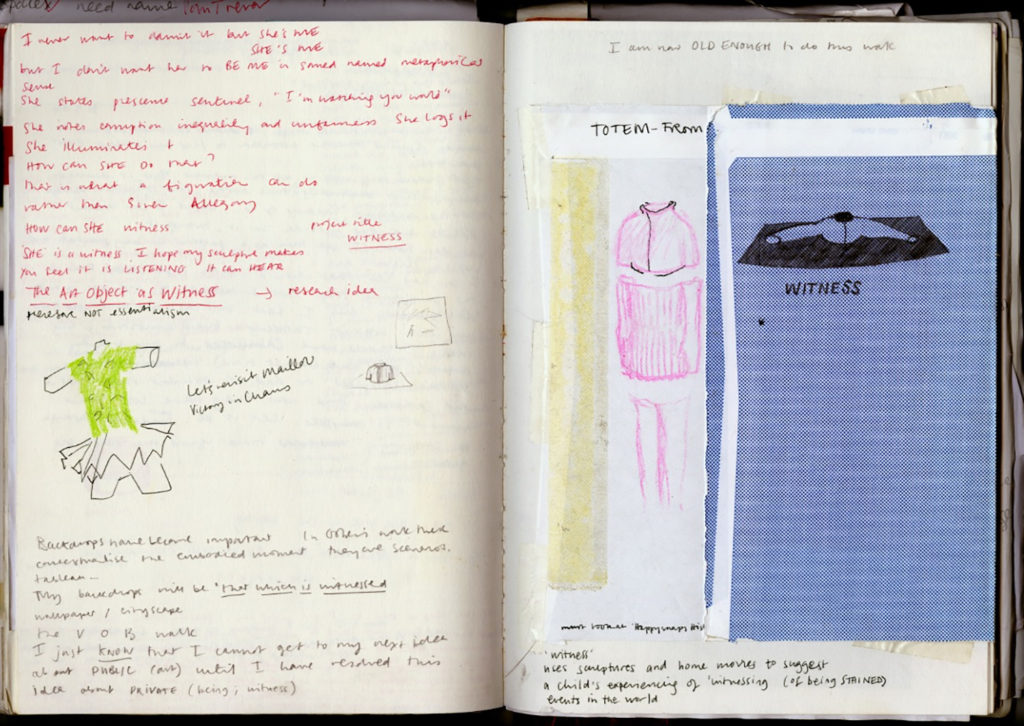 need name Tom Trevor
I never want to admit it but she's ME
SHE'S ME
but I don't want her to BE ME in some named metaphorical
sense
She states presence sentinel, "I'm watching you world"
She notes corruption inequality and unfairness She logs it
She illuminates it
HOW CAN SHE DO that?
that is what a figuration can do
rather than Allegory
HOW CAN SHE witness
project title
WITNESS
'SHE is a witness, I hope my sculpture makes
you feel it is LISTENING it can HEAR
The Art Object as Witness → research idea
therefore NOT essentialism
Let's revisit Maillol
Victory in Chains
Backdrops have become important In work these
contextualise the embodied moment they are scenarios.
tableau...
My backdrops will be 'that which is witnessed
wallpaper / cityscape
the V O B walk
I just KNOW that I cannot get to my next idea
about PUBLIC (art) until I have resolved this
idea about PRIVATE (being, witness)
I am now OLD ENOUGH to do this work
TOTEM-FROM
WITNESS
must look at 'Happysnaps
'witness'
uses sculptures and home movies to suggest
a child's experiencing of 'witnessing (of being STAINED)
events in the world